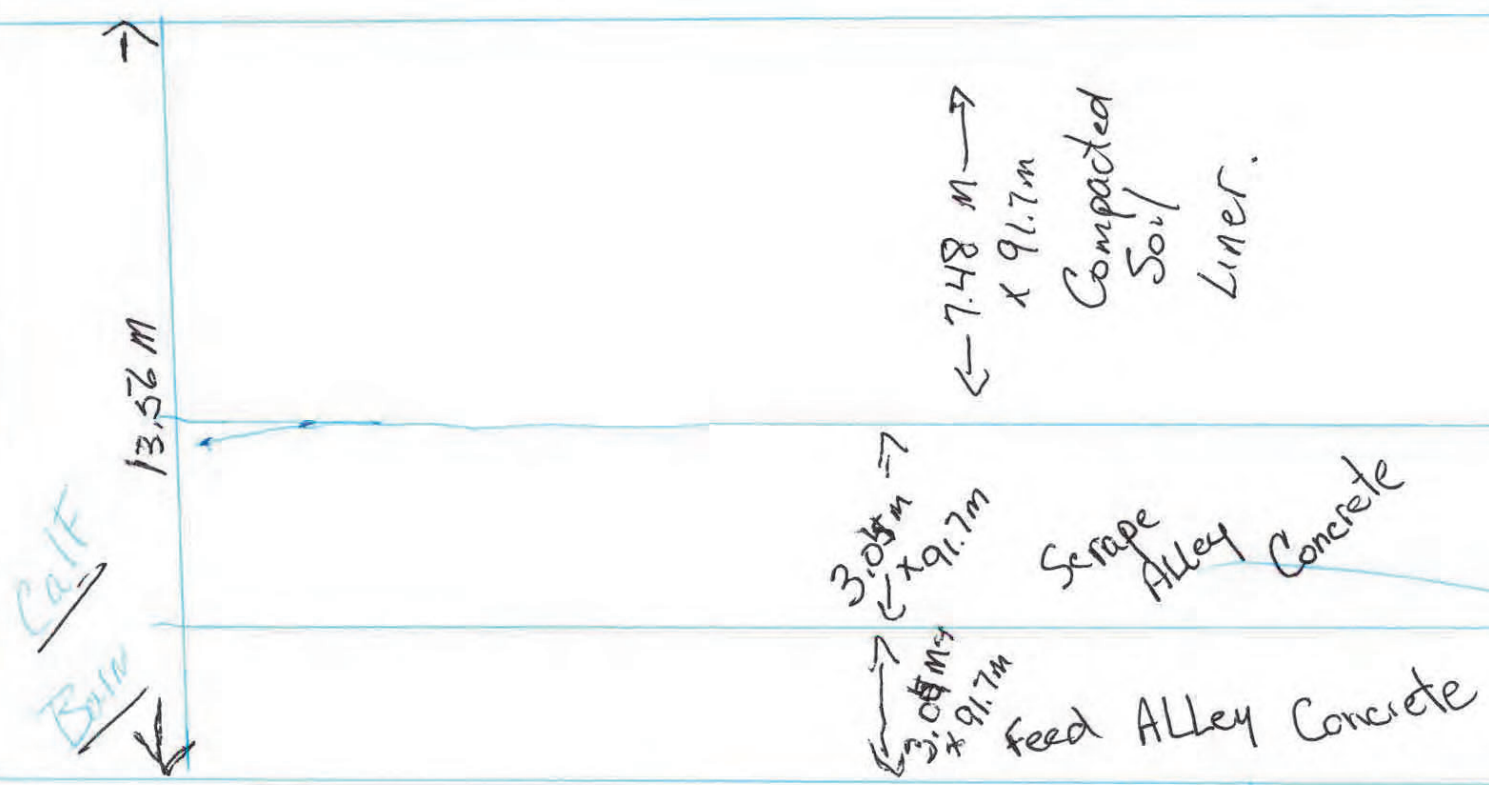 13.56 m
Calf
Barn
← 7.48 m →
x 91.7m
Compacted
Soil
Liner.
3.04m
x 91.7m
Scrape
Alley Concrete
3.04m
x 91.7m
Feed ALLey Concrete